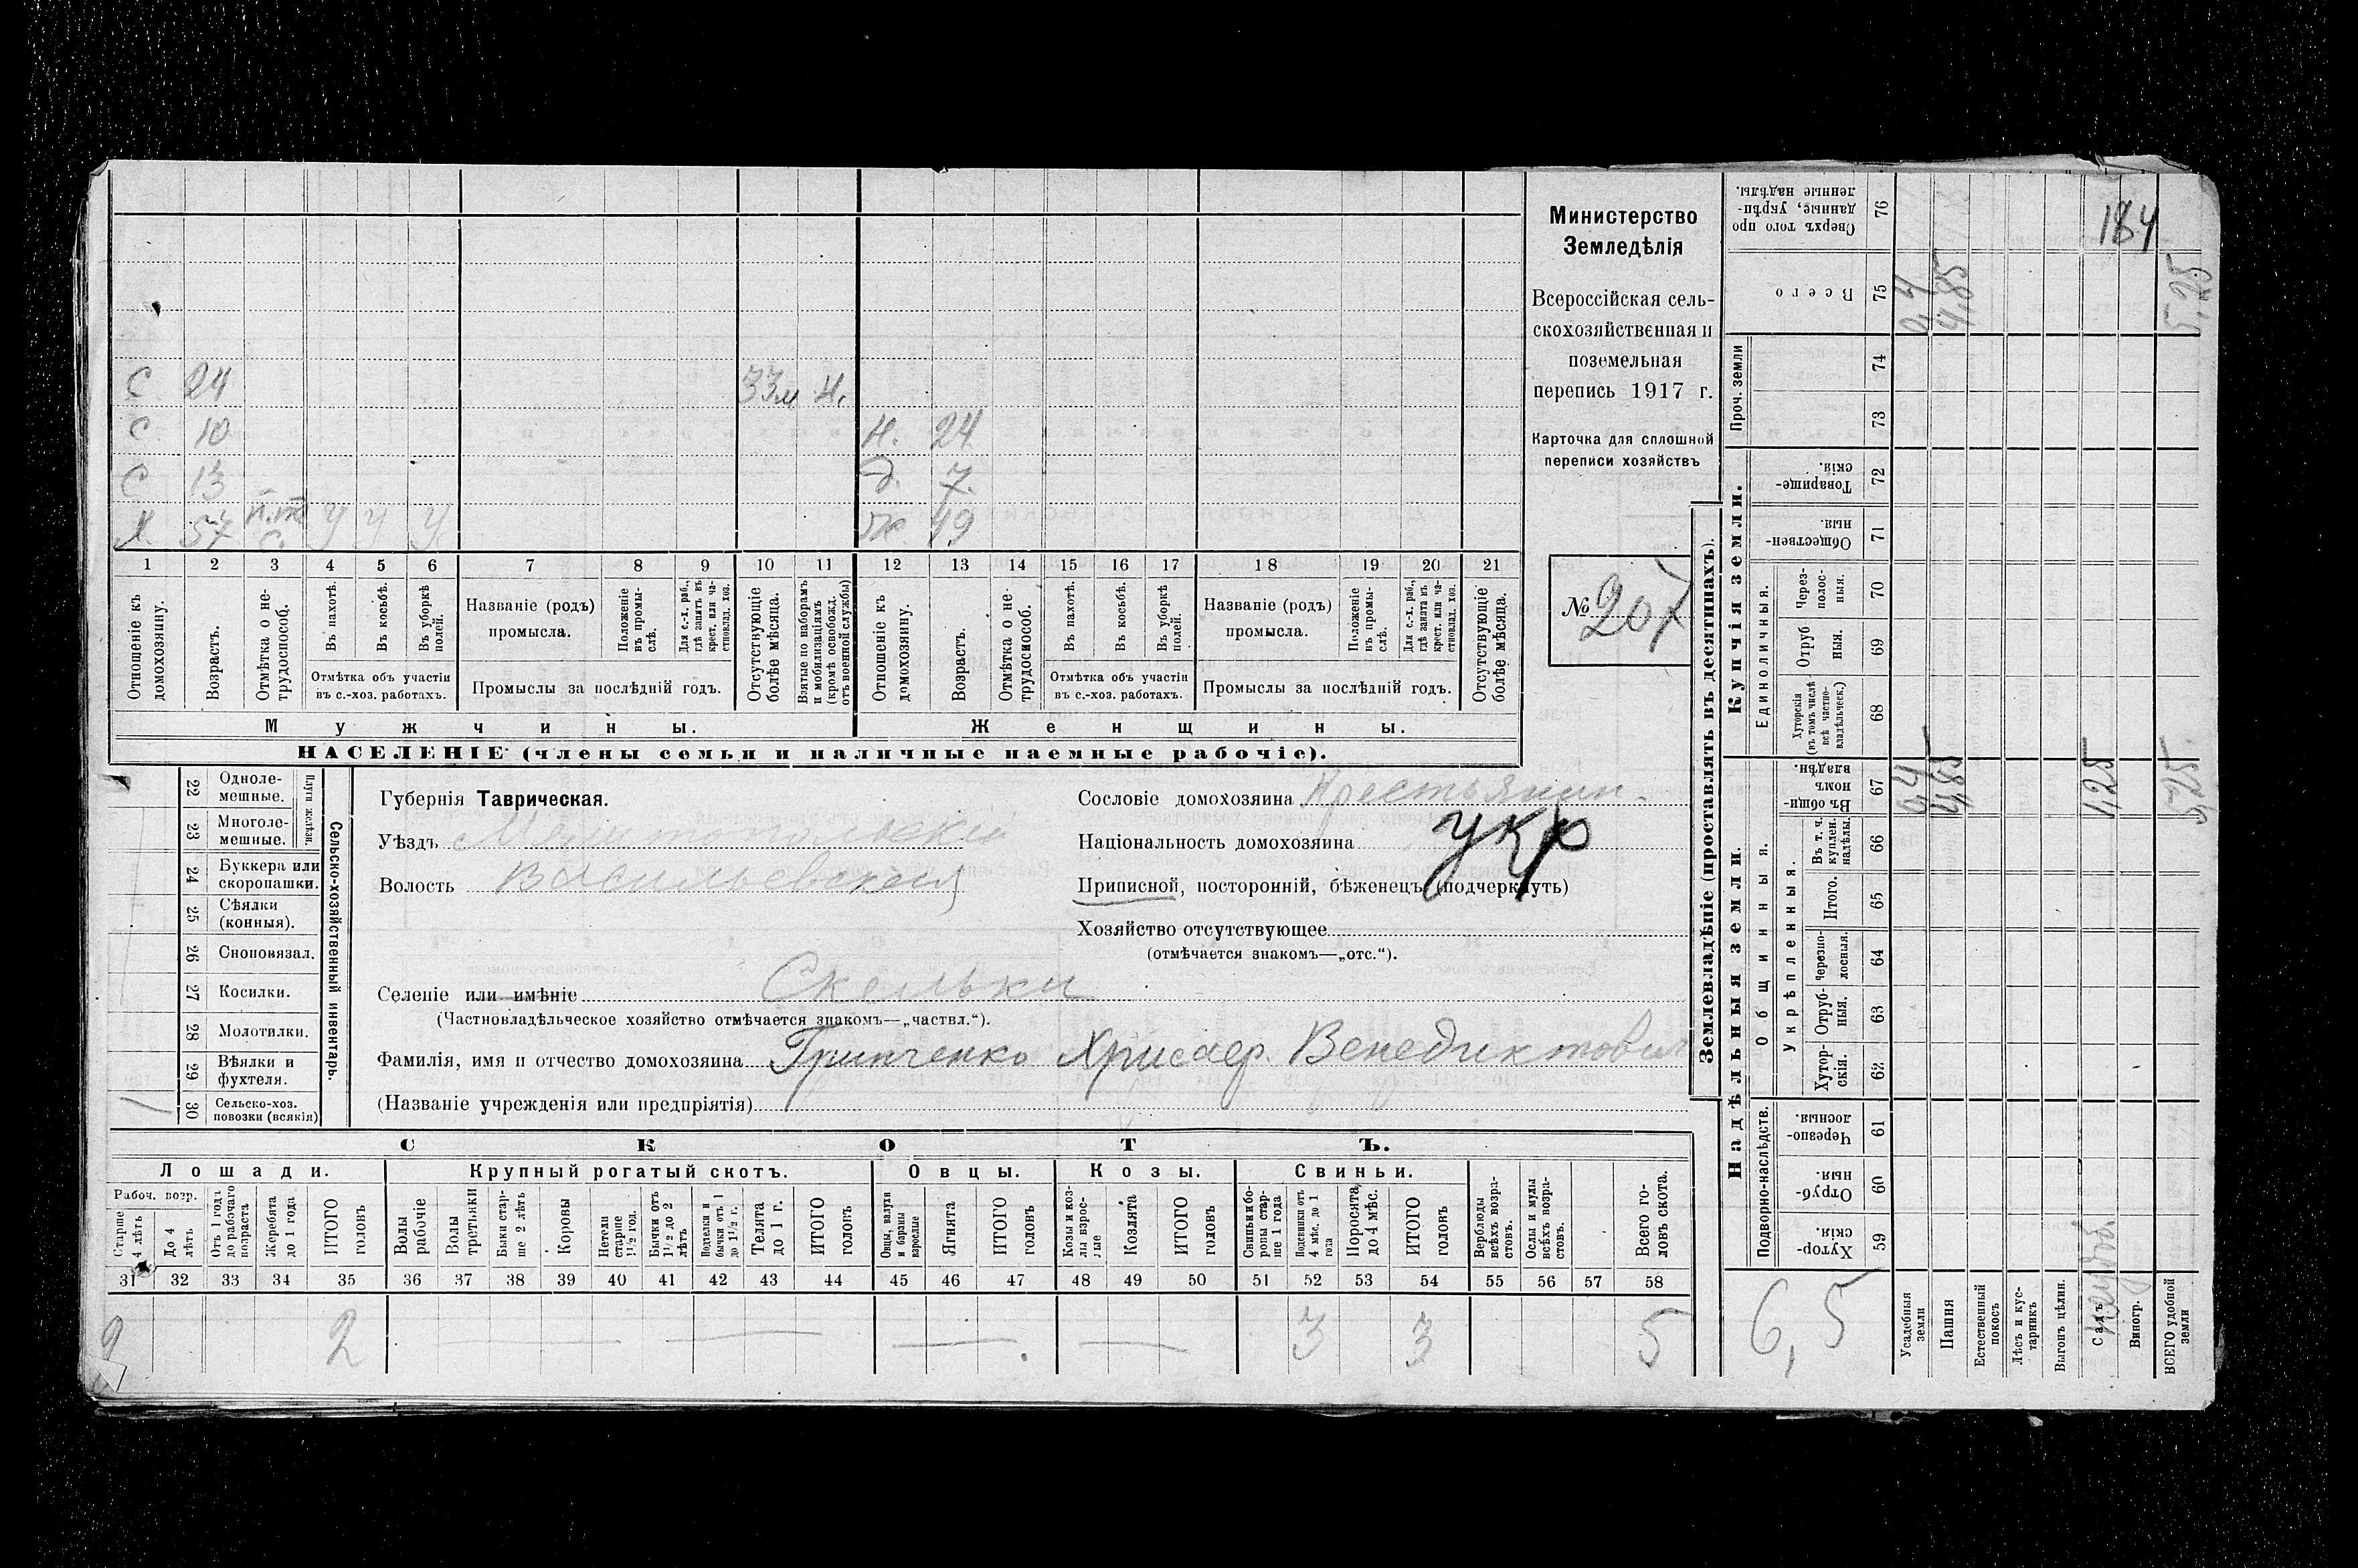 С 24 33м Н.
С 10 Н. 24
С 13 д. 7.
Х. 57 У У У Ж. 49
1 2 3 4 5 6 7 8 9 10 11 12 13 14 15 16 17 18 19 20 21
Отношеніе къ домохозяину.
Возрастъ.
Отмѣтка о не-трудоспособ.
Въ пахотѣ.
Въ косьбѣ.
Въ уборкѣ полей.
Отмѣтка объ участіи
въ с.-хоз. работахъ.
Названіе (родъ)
промысла.
Положеніе въ промы-слѣ.
Для с.-х. раб., гдѣ занятъ въ крест. или ча-стновлад. хоз.
Промыслы за послѣдній годъ.
Отсутствующіе болѣе мѣсяца.
Взятые по наборамъ и мобилизаціямъ (кромѣ освобожд. отъ военной службы)
Отношеніе къ домохозяину.
Возрастъ.
Отмѣтка о не-трудоспособ.
Въ пахотѣ.
Въ косьбѣ.
Въ уборкѣ полей.
Отмѣтка объ участіи
въ с.-хоз. работахъ.
Названіе (родъ)
промысла.
Положеніе въ промы-слѣ.
Для с.-х. раб., гдѣ занята въ крест. или ча-стновлад. хоз.
Промыслы за послѣдній годъ.
Отсутствующіе болѣе мѣсяца.
Мужчины. Женщины.
НАСЕЛЕНІЕ (члены семьи и наличные наемные рабочіе).
Министерство
Земледѣлія
Всероссійская сель-
скохозяйственная и
поземельная
перепись 1917 г.
Карточка для сплошной
переписи хозяйствъ
№ 207
22 Одноле-мешные.
23 Многоле-мешные.
Плуги желѣзн.
24 Буккера или скоропашки.
25 Сѣялки (конныя).
26 Сноповязал.
27 Косилки.
28 Молотилки.
29 Вѣялки и фухтеля.
30 Сельско-хоз. повозки (всякія)
Сельско-хозяйственный инвентарь.
Губернія Таврическая.
Уѣздъ Мелитопольскій
Волость Васильевская
Сословіе домохозяина Крестьянин.
Національность домохозяина укр
Приписной, посторонній, бѣженецъ (подчеркнуть)
Хозяйство отсутствующее
(отмѣчается знакомъ—„отс.“).
Селеніе или имѣніе Скельки
(Частновладѣльческое хозяйство отмѣчается знакомъ—„частвл.“).
Фамилія, имя и отчество домохозяина Гринченко Хрисанф. Венедиктович
(Названіе учрежденія или предпріятія)
СКОТЪ.
Лошади. Крупный рогатый скотъ. Овцы. Козы. Свиньи.
Рабоч. возр.
Старше 4 лѣтъ
До 4 лѣтъ
Отъ 1 года до рабочаго возраста
Жеребята до 1 года
ИТОГО головъ
Волы рабочіе
Волы третьяки
Быки стар-ше 2 лѣтъ
Коровы
Нетели старше 1½ год.
Бычки отъ 1½ до 2 лѣтъ
Подтелки и бычки отъ 1 до 1½ г.
Телята до 1 г.
ИТОГО головъ
Овцы, валухи и бараны взрослые
Ягнята
ИТОГО головъ
Козы и коз-лы взрос-лые
Козлята
ИТОГО головъ
Свиньи и бо-ровы стар-ше 1 года
Подсвинки отъ 4 мѣс. до 1 года
Поросята до 4 мѣс.
ИТОГО головъ
Верблюды всѣхъ возра-стовъ.
Ослы и мулы всѣхъ возра-стовъ.
Всего го-ловъ скота.
31 32 33 34 35 36 37 38 39 40 41 42 43 44 45 46 47 48 49 50 51 52 53 54 55 56 57 58
2 2 3 3 5
Землевладѣніе (проставлять въ десятинахъ).
Купчія земли.
Надѣльныя земли.
Сверхъ того про данные, укрѣп-ленные надѣлы. 76
Всего 75 0,4 4,85 5,25
184
Проч. земли 74 73
Товарище-скія. 72
Обществен-ныя. 71
Единоличныя.
Через-полос-ныя. 70
Отруб ныя. 69
Хуторскія (въ томъ числѣ всѣ частно-владѣльческ.) 68
Въ общи-номъ владѣн. 67 0,4 4,85 1,25 5,25
Общинныя.
Укрѣпленныя.
Въ т. ч. куплен. надѣлы. 66
Итого. 65
Черезпо-лосныя. 64
Отруб-ныя. 63
Хутор-скія. 62
Подворно-наслѣдств.
Черезпо-лосныя. 61
Отруб-ныя. 60
Хутор-скія. 59
6,5
Усадебныя земли
Пашня
Естественный покосъ
Лѣсъ и кус-тарникъ
Выгонъ цѣлин.
Садъ
неудоб.
Виногр.
ВСЕГО удобной земли